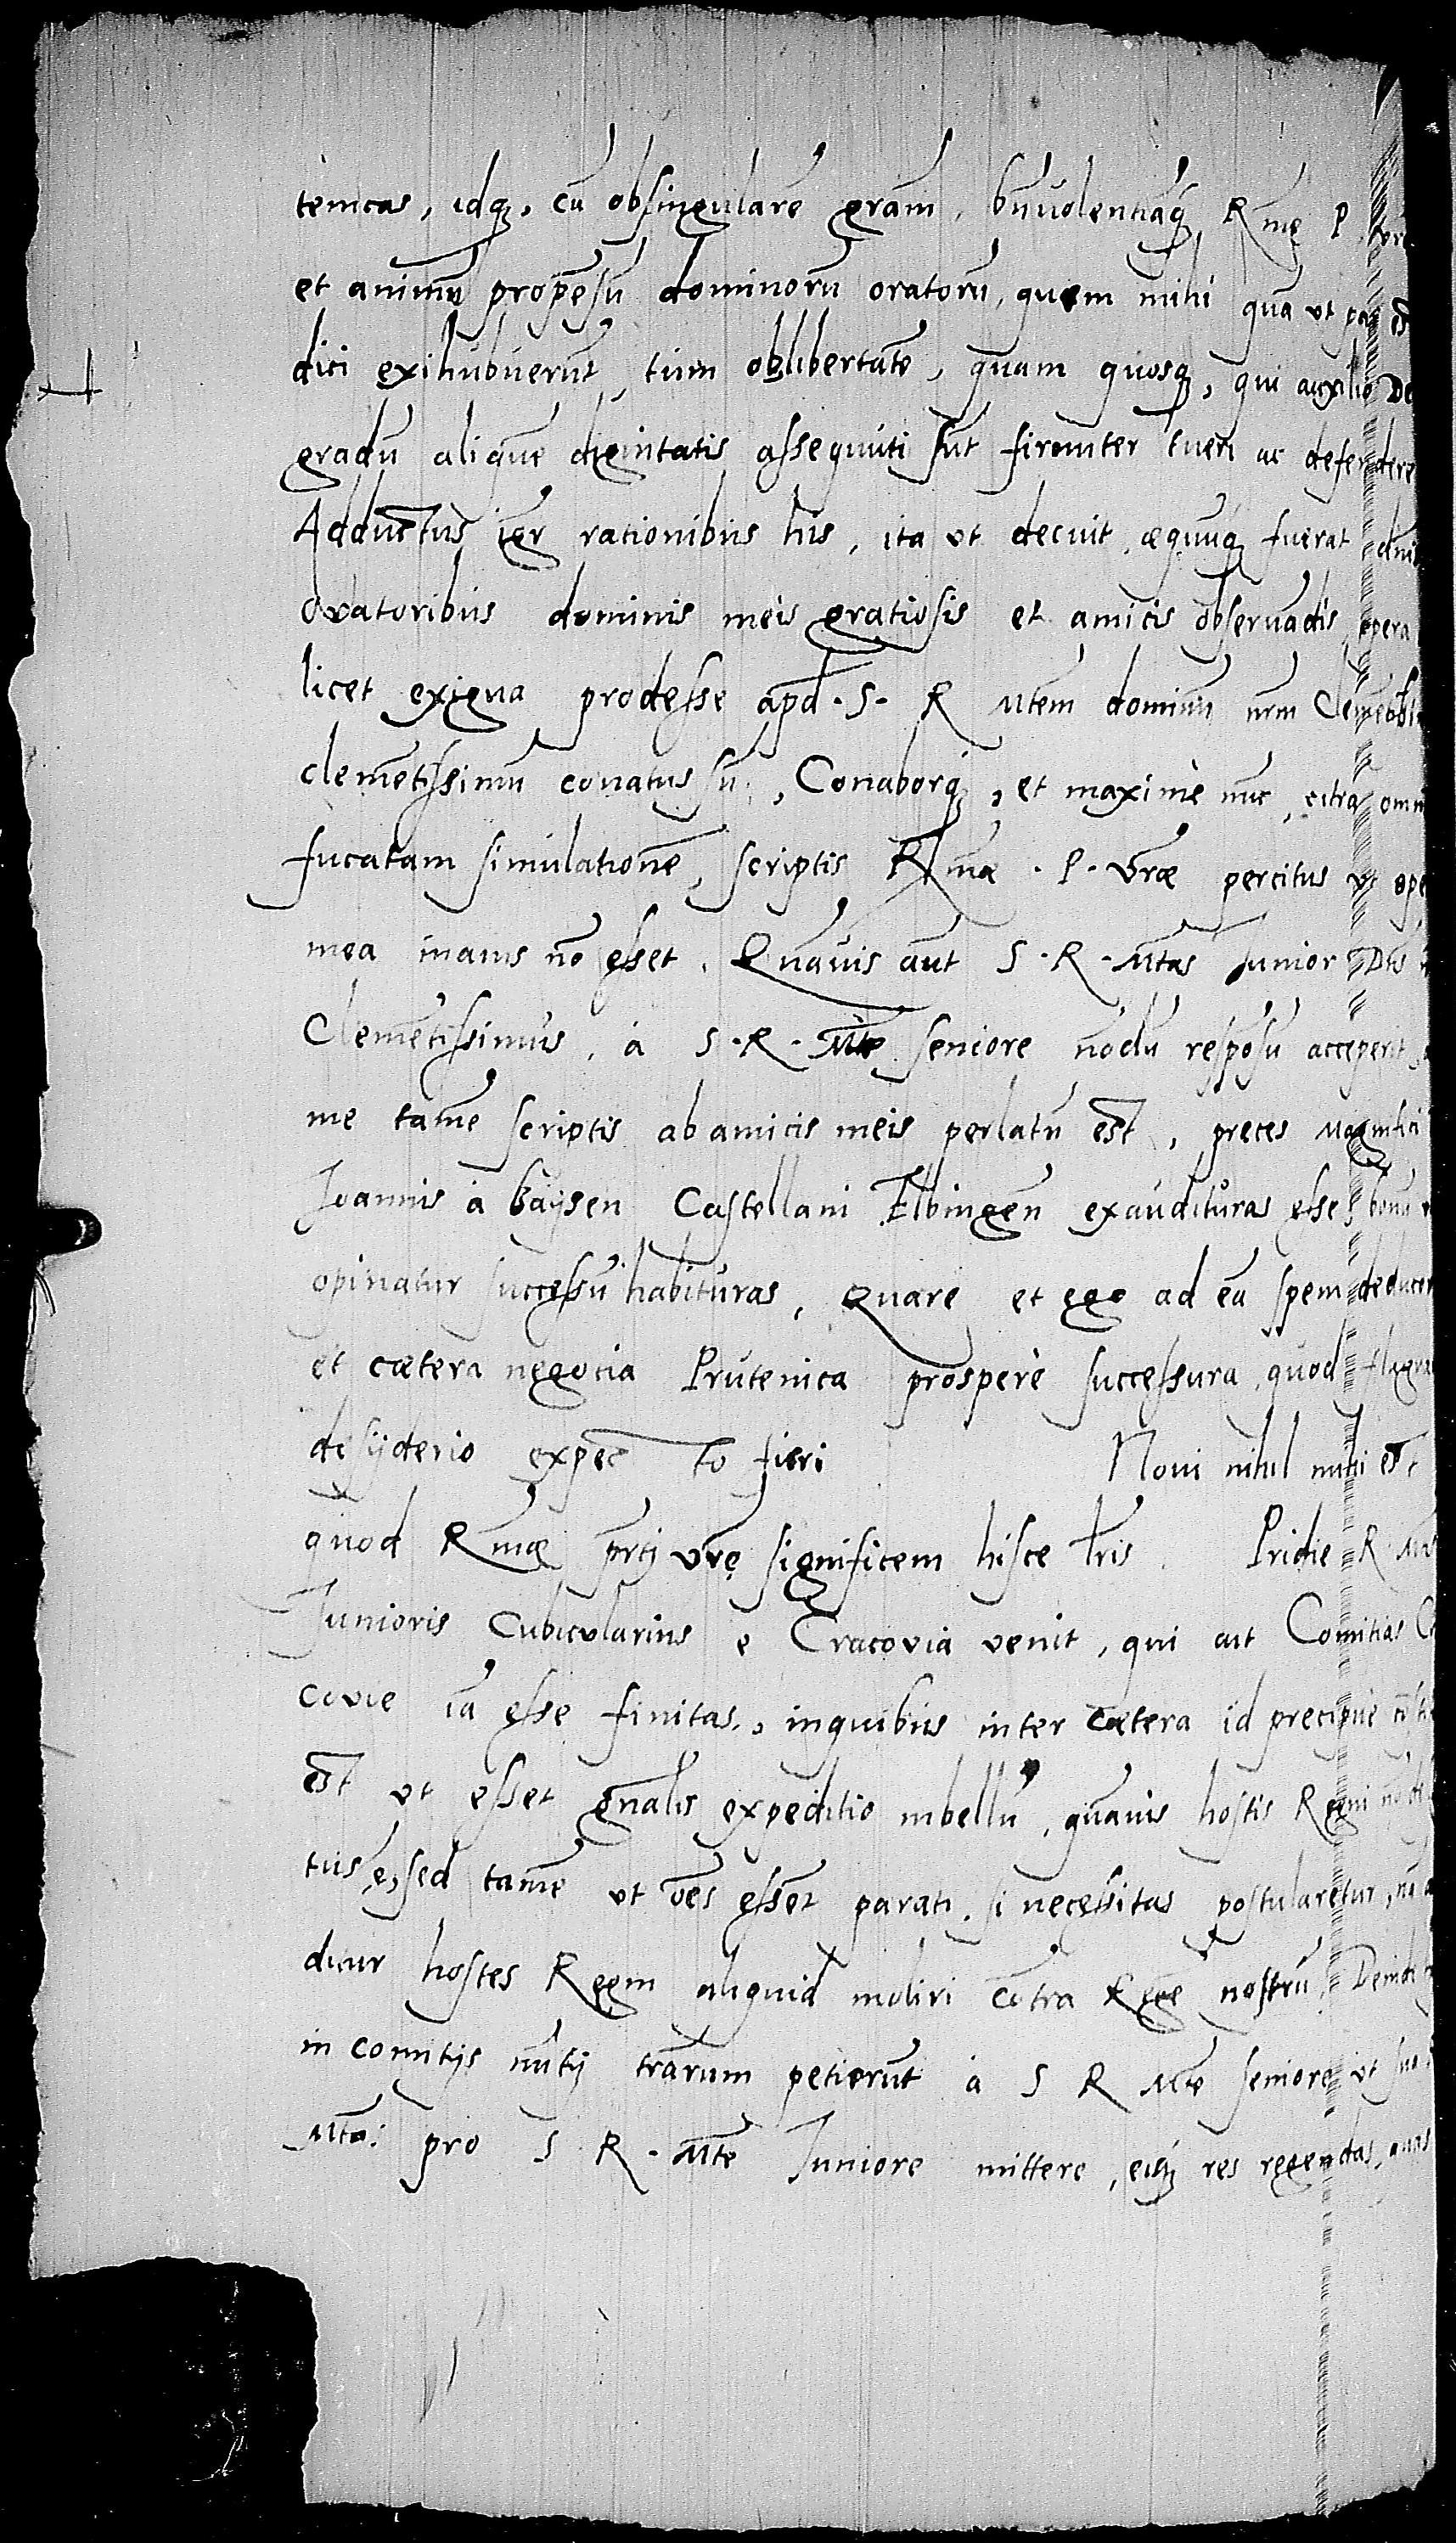 tenicas, idq, cū obsingularē gratm, bnuolentiāq Rmę P. vrę
et animū propēsū dominorū oratorū, quem mihi quā ut par est
dici exihubuerūt, tum oblibertatē, quam quosq, qui auxilio De
gradū aliquē dignitatis assequuti sūt firmiter tueri ac defendere
Adductus igr rationibus his, ita ut decuit, æquūq fuerat dnis
Oratoribus dominis meis gratiosis et amicis obseruādis, opera
licet exigua prodesse apd · S · R Mtem dominū nrm
clemētissimū conatus sū, Conaborq, et maximè nūc, citra omnē
fucatam simulationē, scriptis Rmæ · P · Vræ percitus ut ope
mea inanis nō esset. Quāuis aūt S · R · Mtas Iunior Dns
Clemētissimus, à S · R · Mte seniore nōdū respōsū acceperit,
me tamē scriptis ab amicis meis perlatū est, preces Magnifici
Ioannis à Baysen Castellani Elbingeñ exauditūras esse, bonū
opinatur successū habituras, Quare et ego ad eā spem deducor
et cætera negotia Prutenica prosperè successura, quod flagra
desyderio expecto fieri Noui nihil mihi est
quod Rmæ prti vrę significem hisce lris. Pridie R Mtis
Iunioris Cubicularius e Cracovia venit, qui ait Comitias Cra
covie iā esse finitas, inquibus inter cætera id precipuè cōsti
est ut esset gnalis expeditio inbellū, quāuis hostis Regni nō de
tus e, sed tamē ut oēs essēt parati, si necessitas postularetur, nā
dicūr hostes Regni aliquid moliri cōtra Regē nostrū. Deinde
in comitijs nūtij trārum petierūt à S R Mte seniore ut sua
Mtas pro S · R · Mte Iuniore mittere, eiq res regendas, quas